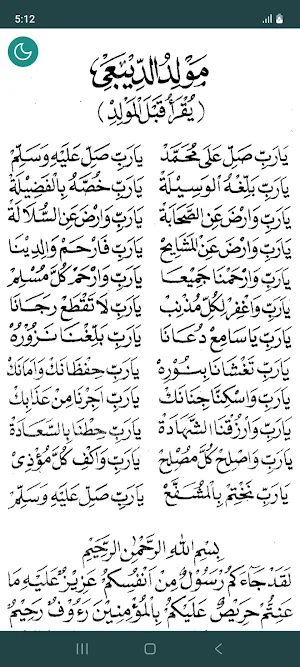 5:12
مَوْلِدُ الدِّيْبَعِي
(يُقْرَأُ قَبْلَ الْمَوْلِدِ)
يَارَبِّ صَلِّ عَلَى مُحَمَّدْ يَارَبِّ صَلِّ عَلَيْهِ وَسَلِّمْ
يَارَبِّ بَلِّغْهُ الْوَسِيْلَةْ يَارَبِّ خُصَّهُ بِالْفَضِيْلَةْ
يَارَبِّ وَارْضَ عَنِ الصَّحَابَةْ يَارَبِّ وَارْضَ عَنِ السُّلَالَةْ
يَارَبِّ وَارْضَ عَنِ الْمَشَايِخْ يَارَبِّ فَارْحَمْ وَالِدِيْنَا
يَارَبِّ وَارْحَمْنَا جَمِيْعًا يَارَبِّ وَارْحَمْ كُلَّ مُسْلِمْ
يَارَبِّ وَاغْفِرْ لِكُلِّ مُذْنِبْ يَارَبِّ لَا تَقْطَعْ رَجَانَا
يَارَبِّ يَا سَامِعْ دُعَانَا يَارَبِّ بَلِّغْنَا نَزُوْرُهْ
يَارَبِّ تَغْشَانَا بِنُوْرِهْ يَارَبِّ حِفْظَانَكْ وَامَانَكْ
يَارَبِّ وَاسْكِنَّا جِنَانَكْ يَارَبِّ اَجِرْنَا مِنْ عَذَابِكْ
يَارَبِّ وَارْزُقْنَا الشَّهَادَةْ يَارَبِّ حِطْنَا بِالسَّعَادَةْ
يَارَبِّ وَاصْلِحْ كُلَّ مُصْلِحْ يَارَبِّ وَاكْفِ كُلَّ مُؤْذِى
يَارَبِّ نَخْتِمْ بِالْمُشَفَّعْ يَارَبِّ صَلِّ عَلَيْهِ وَسَلِّمْ
بِسْمِ اللهِ الرَّحْمٰنِ الرَّحِيْمِ
لَقَدْ جَاءَكُمْ رَسُوْلٌ مِنْ اَنْفُسِكُمْ عَزِيْزٌ عَلَيْهِ مَا
عَنِتُّمْ حَرِيْصٌ عَلَيْكُمْ بِالْمُؤْمِنِيْنَ رَءُوْفٌ رَحِيْمٌ